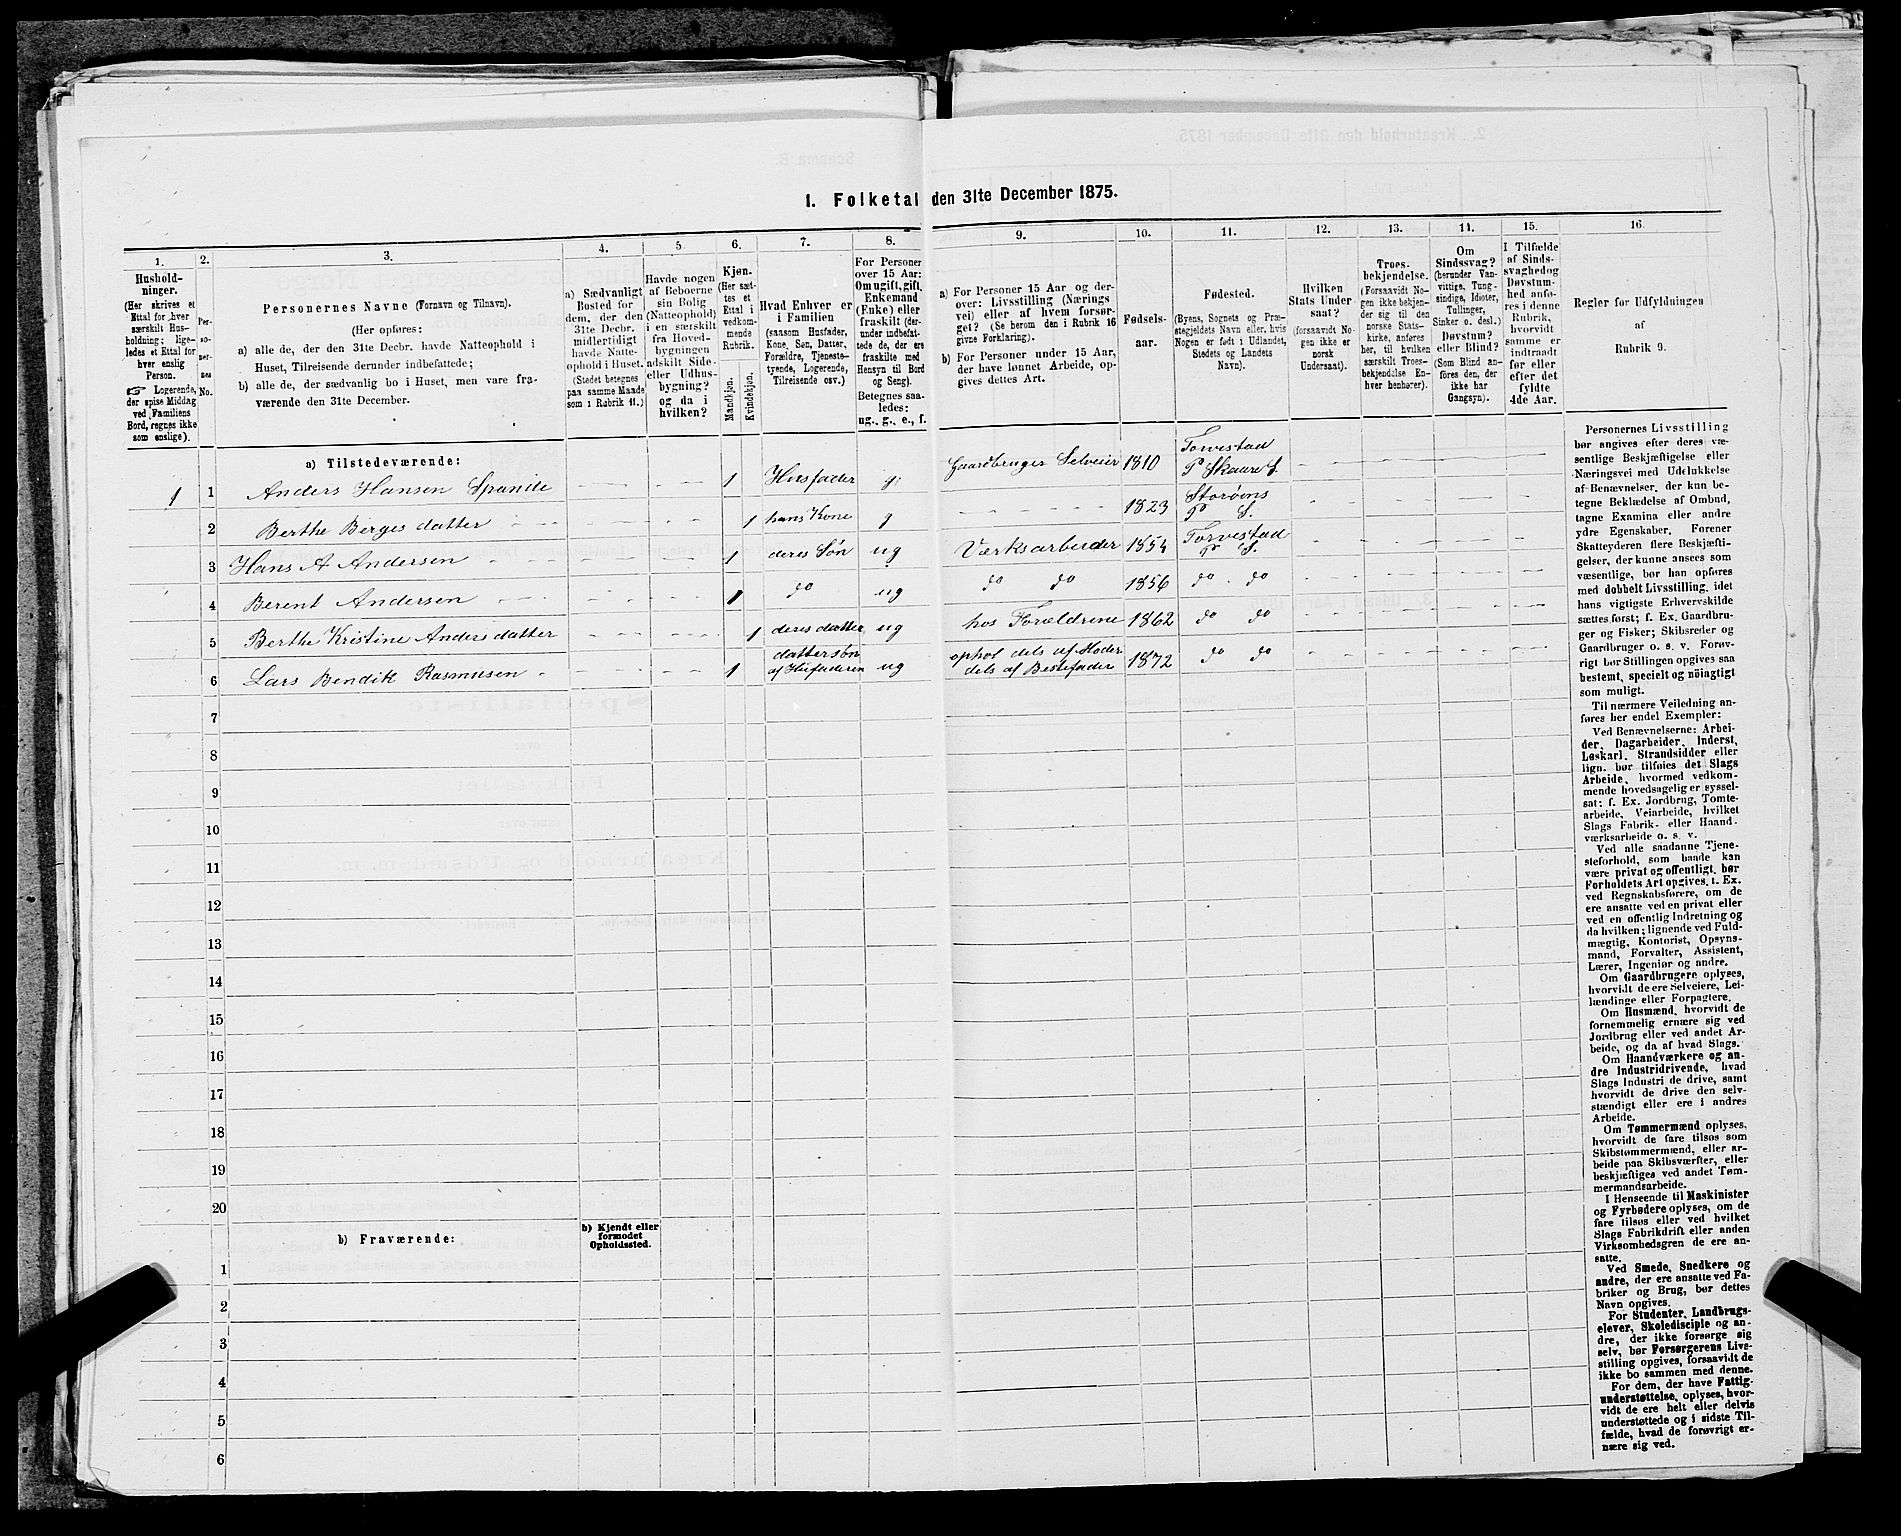 1. Folketal den 31te December 1875.
1.
Hushold-
ninger.
(Her skrives et
Ettal for hver
særskilt Hus-
holdning; lige-
ledes et Ettal for
hver enslig
Person.
☞ Logerende,
der spise Middag
ved Familiens
Bord, regnes ikke
som enslige).
2.
Per-
so-
ner-
nes
No.
3.
Personernes Navne (Fornavn og Tilnavn).
(Her opføres:
a) alle de, der den 31te Decbr. havde Natteophold i
Huset, Tilreisende derunder indbefattede;
b) alle de, der sædvanlig bo i Huset, men vare fra-
værende den 31te December.
4.
a) Sædvanligt
Bosted for
dem, der den
31te Decbr.
midlertidigt
havde Natte-
ophold i Huset.
(Stedet betegnes
paa samme Maade
som i Rubrik 11.)
5
Havde nogen
af Beboerne
sin Bolig
(Natteophold)
i en særskilt
fra Hoved-
bygningen
adskilt Side-
eller Udhus-
bygning?
og da i
hvilken?
6.
Kjøn.
(Her sæt-
tes et
Ettal i
vedkom-
mende
Rubrik.
Mandkjøn.
Kvindekjøn.
7.
Hvad Enhver er
i Familien
(saasom Husfader,
Kone, Søn, Datter,
Forældre, Tjeneste-
tyende, Logerende,
Tilreisende osv.)
8.
For Personer
over 15 Aar:
Om ugift, gift,
Enkemand
(Enke) eller
fraskilt (der-
under indbefat-
tede de, der ere
fraskilte med
Hensyn til Bord
og Seng).
Betegnes saa-
ledes:
ug., g., e., f.
9.
a) For Personer 15 Aar og der-
over: Livsstilling (Nærings-
vei) eller af hvem forsør-
get? (Se herom den i Rubrik 16
givne Forklaring).
b) For Personer under 15 Aar,
der have lønnet Arbeide, op-
gives dettes Art.
10.
Fødsels-
aar.
11.
Fødested.
(Byens, Sognets og Præ-
stegjeldets Navn eller, hvis
Nogen er født i Udlandet,
Stedets og Landets
Navn).
12.
Hvilken
Stats Under-
saat?
(forsaavidt No-
gen ikke er
norsk
Undersaat).
13.
Troes-
bekjendelse.
(Forsaavidt No-
gen ikke bekjen-
der sig til den
norske Stats-
kirke, anføres
her, til hvilken
særskilt Troes-
bekjendelse En-
hver henhører).
14.
Om
Sindssvag?
(herunder Van-
vittige, Tung-
sindige, Idioter,
Tullinger,
Sinker o. desl.)
Døvstum?
eller Blind?
(Som Blind an-
føres den, der
ikke har
Gangsyn).
15.
I Tilfælde
af Sinds-
svaghed og
Døvstum-
hed anfø-
res i denne
Rubrik,
hvorvidt
samme er
indtraadt
før eller
efter det
fyldte
4de Aar.
16
Regler for Udfyldningen
af
Rubrik 9.
a) Tilstedeværende:
1 1 Anders Hansen Spande 1 Husfader g Gaardbruger Selveier 1810 Torvestad P Skaare S.
2 Berthe Berges datter 1 hans Kone g 1823 Storøens P S.
3 Hans A Andersen 1 deres Søn ug Værksarbeider 1854 Torvestad P S.
4 Berent Andersen 1 do ug do do 1856 do do
5 Berthe Kristine Anders datter 1 deres datter ug hos Forældrene 1862 do do
6 Lars Bendik Rasmusen 1 dattersøn af Husfaderen ug ophol dels af Moder dels af Bestefader 1872 do do
7
8
9
10
11
12
13
14
15
16
17
18
19
20
b) Fraværende:
b) Kjendt eller
formodet
Opholdssted.
1
2
3
4
5
6
Personernes Livsstilling
bør angives efter deres væ-
sentlige Beskjæftigelse eller
Næringsvei med Udelukkelse
af Benævnelser, der kun be-
tegne Beklædelse af Ombud,
tagne Examina eller andre
ydre Egenskaber. Forener
Skatteyderen flere Beskjæfti-
gelser, der kunne ansees som
væsentlige, bør han opføres
med dobbelt Livsstilling, idet
hans vigtigste Erhvervskilde
sættes først; f. Ex. Gaardbru-
ger og Fisker; Skibsreder og
Gaardbruger o. s. v. Forøv-
rigt bør Stillingen opgives saa
bestemt, specielt og nöiagtigt
som muligt.
Til nærmere Veiledning an-
føres her endel Exempler:
Ved Benævnelserne: Arbei-
der, Dagarbeider, Inderst,
Løskarl, Strandsidder eller
lign. bør tilføies det Slags
Arbeide, hvormed vedkom-
mende hovedsagelig er syssel-
sat; f. Ex. Jordbrug, Tomte-
arbeide, Veiarbeide, hvilket
Slags Fabrik- eller Haand-
værksarbeide o. s. v.
Ved alle saadanne Tjene-
steforhold, som baade kan
være privat og offentligt, bør
Forholdets Art opgives, t. Ex.
ved Regnskabsførere, om de
ere ansatte ved en privat eller
ved en offentlig Indretning og
da hvilken; lignende ved Fuld-
mægtig, Kontorist, Opsyns-
mand, Forvalter, Assistent,
Lærer, Ingeniør og andre.
Om Gaardbrugere oplyses,
hvorvidt de ere Selveiere, Lei-
lændinge eller Forpagtere.
Om Husmænd, hvorvidt de
fornemmelig ernære sig ved
Jordbrug eller ved andet Ar-
beide, og da af hvad Slags.
Om Haandværkere og an-
dre Industridrivende, hvad
Slags Industri de drive, samt
hvorvidt de drive den selv-
stændigt eller ere i andres
Arbeide.
Om Tømmermænd oplyses,
hvorvidt de fare tilsøs som
Skibstømmermænd, eller ar-
beide paa Skibsværfter, eller
beskjæftiges ved andet Tøm-
mermandsarbeide.
I Henseende til Maskinister
og Fyrbødere oplyses, om de
fare tilsøs eller ved hvilket
Slags Fabrikdrift eller anden
Virksomhedsgren de ere an-
satte.
Ved Smede, Snedkere og
andre, der ere ansatte ved Fa-
briker og Brug, bør dettes
Navn opgives.
For Studenter, Landbrugs-
elever, Skoledisciple og an-
dre, der ikke forsørge sig
selv, bør Forsørgerens Livs-
stilling opgives, forsaavidt de
ikke bo sammen med denne.
For dem, der have Fattig-
understøttelse, oplyses, hvor-
vidt de ere helt eller delvis
understøttede og i sidste Til-
fælde, hvad de forøvrigt er-
nære sig ved.